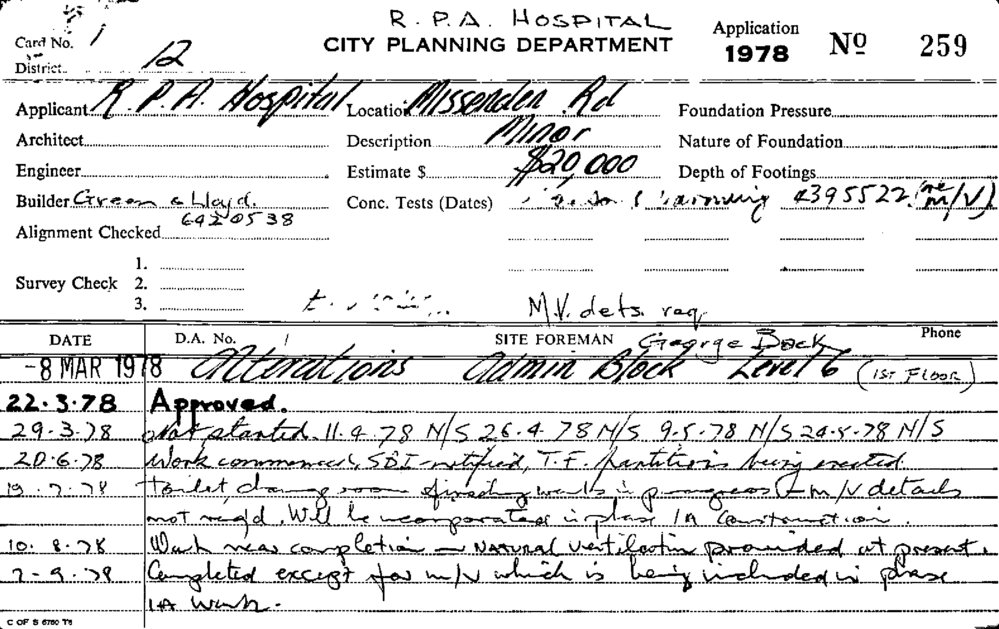 R. P. A. HOSPITAL
CITY PLANNING DEPARTMENT
Application
1978 Nº 259
Card No. 1
District 12
Applicant R. P. A. Hospital Location Missenden Rd Foundation Pressure
Architect Description Minor Nature of Foundation
Engineer Estimate $ $20,000 Depth of Footings
Builder Green & Lloyd. Conc. Tests (Dates) 4395522 (re m/V)
6420538
Alignment Checked
1.
Survey Check 2.
3.
M.V. dets. req.
DATE D.A. No. SITE FOREMAN George Bock Phone
-8 MAR 1978 Alterations Admin Block Level 6 (1ST FLOOR)
22.3.78 Approved.
29.3.78 Not started. 11.4.78 N/S 26.4.78 N/S 9.5.78 N/S 24.5.78 N/S
20.6.78 Work commenced, SBI notified, T.F. partitions being erected
19.7.78 Toilet, works in progress - m/v details
not req'd. Will be incorporated in phase 1A construction.
10.8.78 Work near completion - NATURAL ventilation provided at present.
7-9.78 Completed except for m/v which is being included in phase
1A work.
C OF S 6760 T6